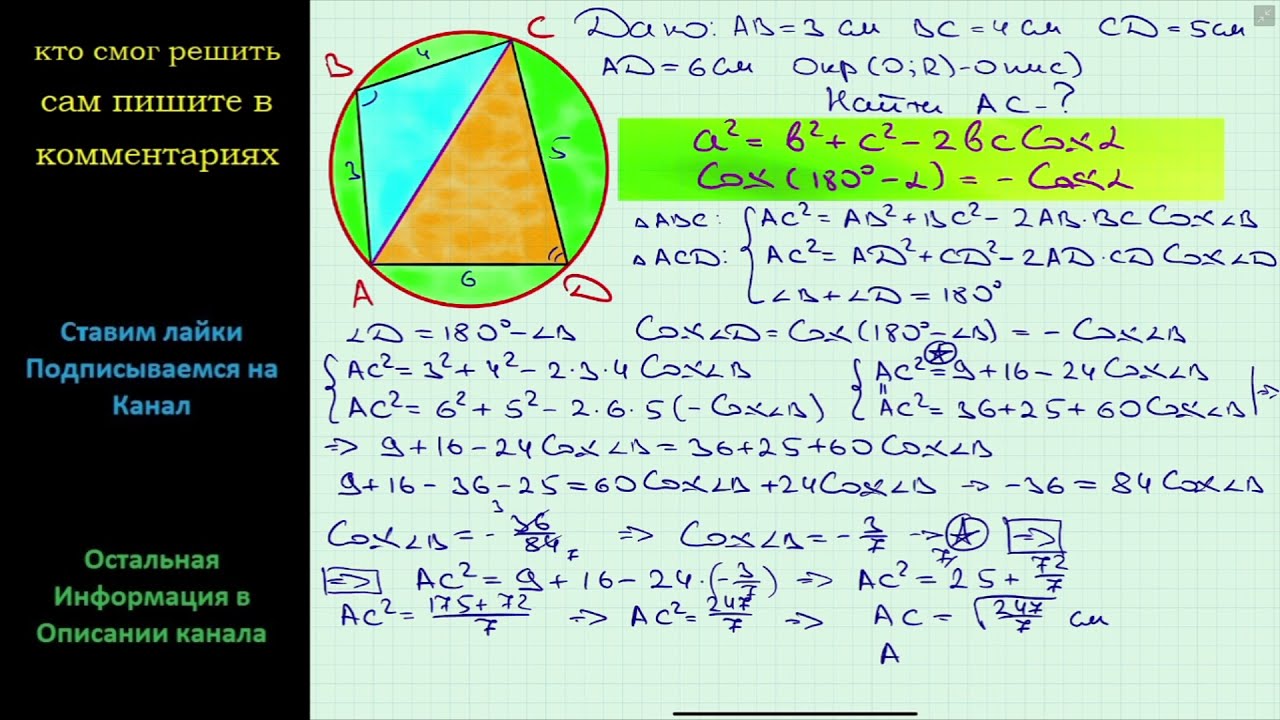 кто смог решить
сам пишите в
комментариях
Ставим лайки
Подписываемся на
Канал
Остальная
Информация в
Описании канала
B
C
A
D
4
3
5
6
Дано: AB=3 см BC=4 см CD=5 см
AD=6 см Окр(O;R)-опис)
Найти AC-?
a²= b²+c²-2bc Cos α
Cos(180°-α) = - Cos α
△ABC: { AC²= AB²+BC²- 2AB·BC Cos∠B
△ACD: { AC²= AD²+CD²-2AD·CD Cos∠D
∠B+∠D=180°
∠D=180°-∠B Cos∠D=Cos(180°-∠B) = - Cos∠B
{ AC²=3²+4²-2·3·4 Cos∠B { AC²=9+16-24Cos∠B
{ AC²=6²+5²-2·6·5(-Cos∠B) { AC²=36+25+60Cos∠B |=>
=> 9+16-24Cos∠B=36+25+60Cos∠B
9+16-36-25=60Cos∠B+24Cos∠B => -36=84Cos∠B
Cos∠B=-36/84 3 7 => Cos∠B=-3/7 -> ☆ =>
=> AC²=9+16-24·(-3/7) => AC²=25+72/7 7/
AC²=(175+72)/7 => AC²=247/7 => AC=√(247/7) см
A